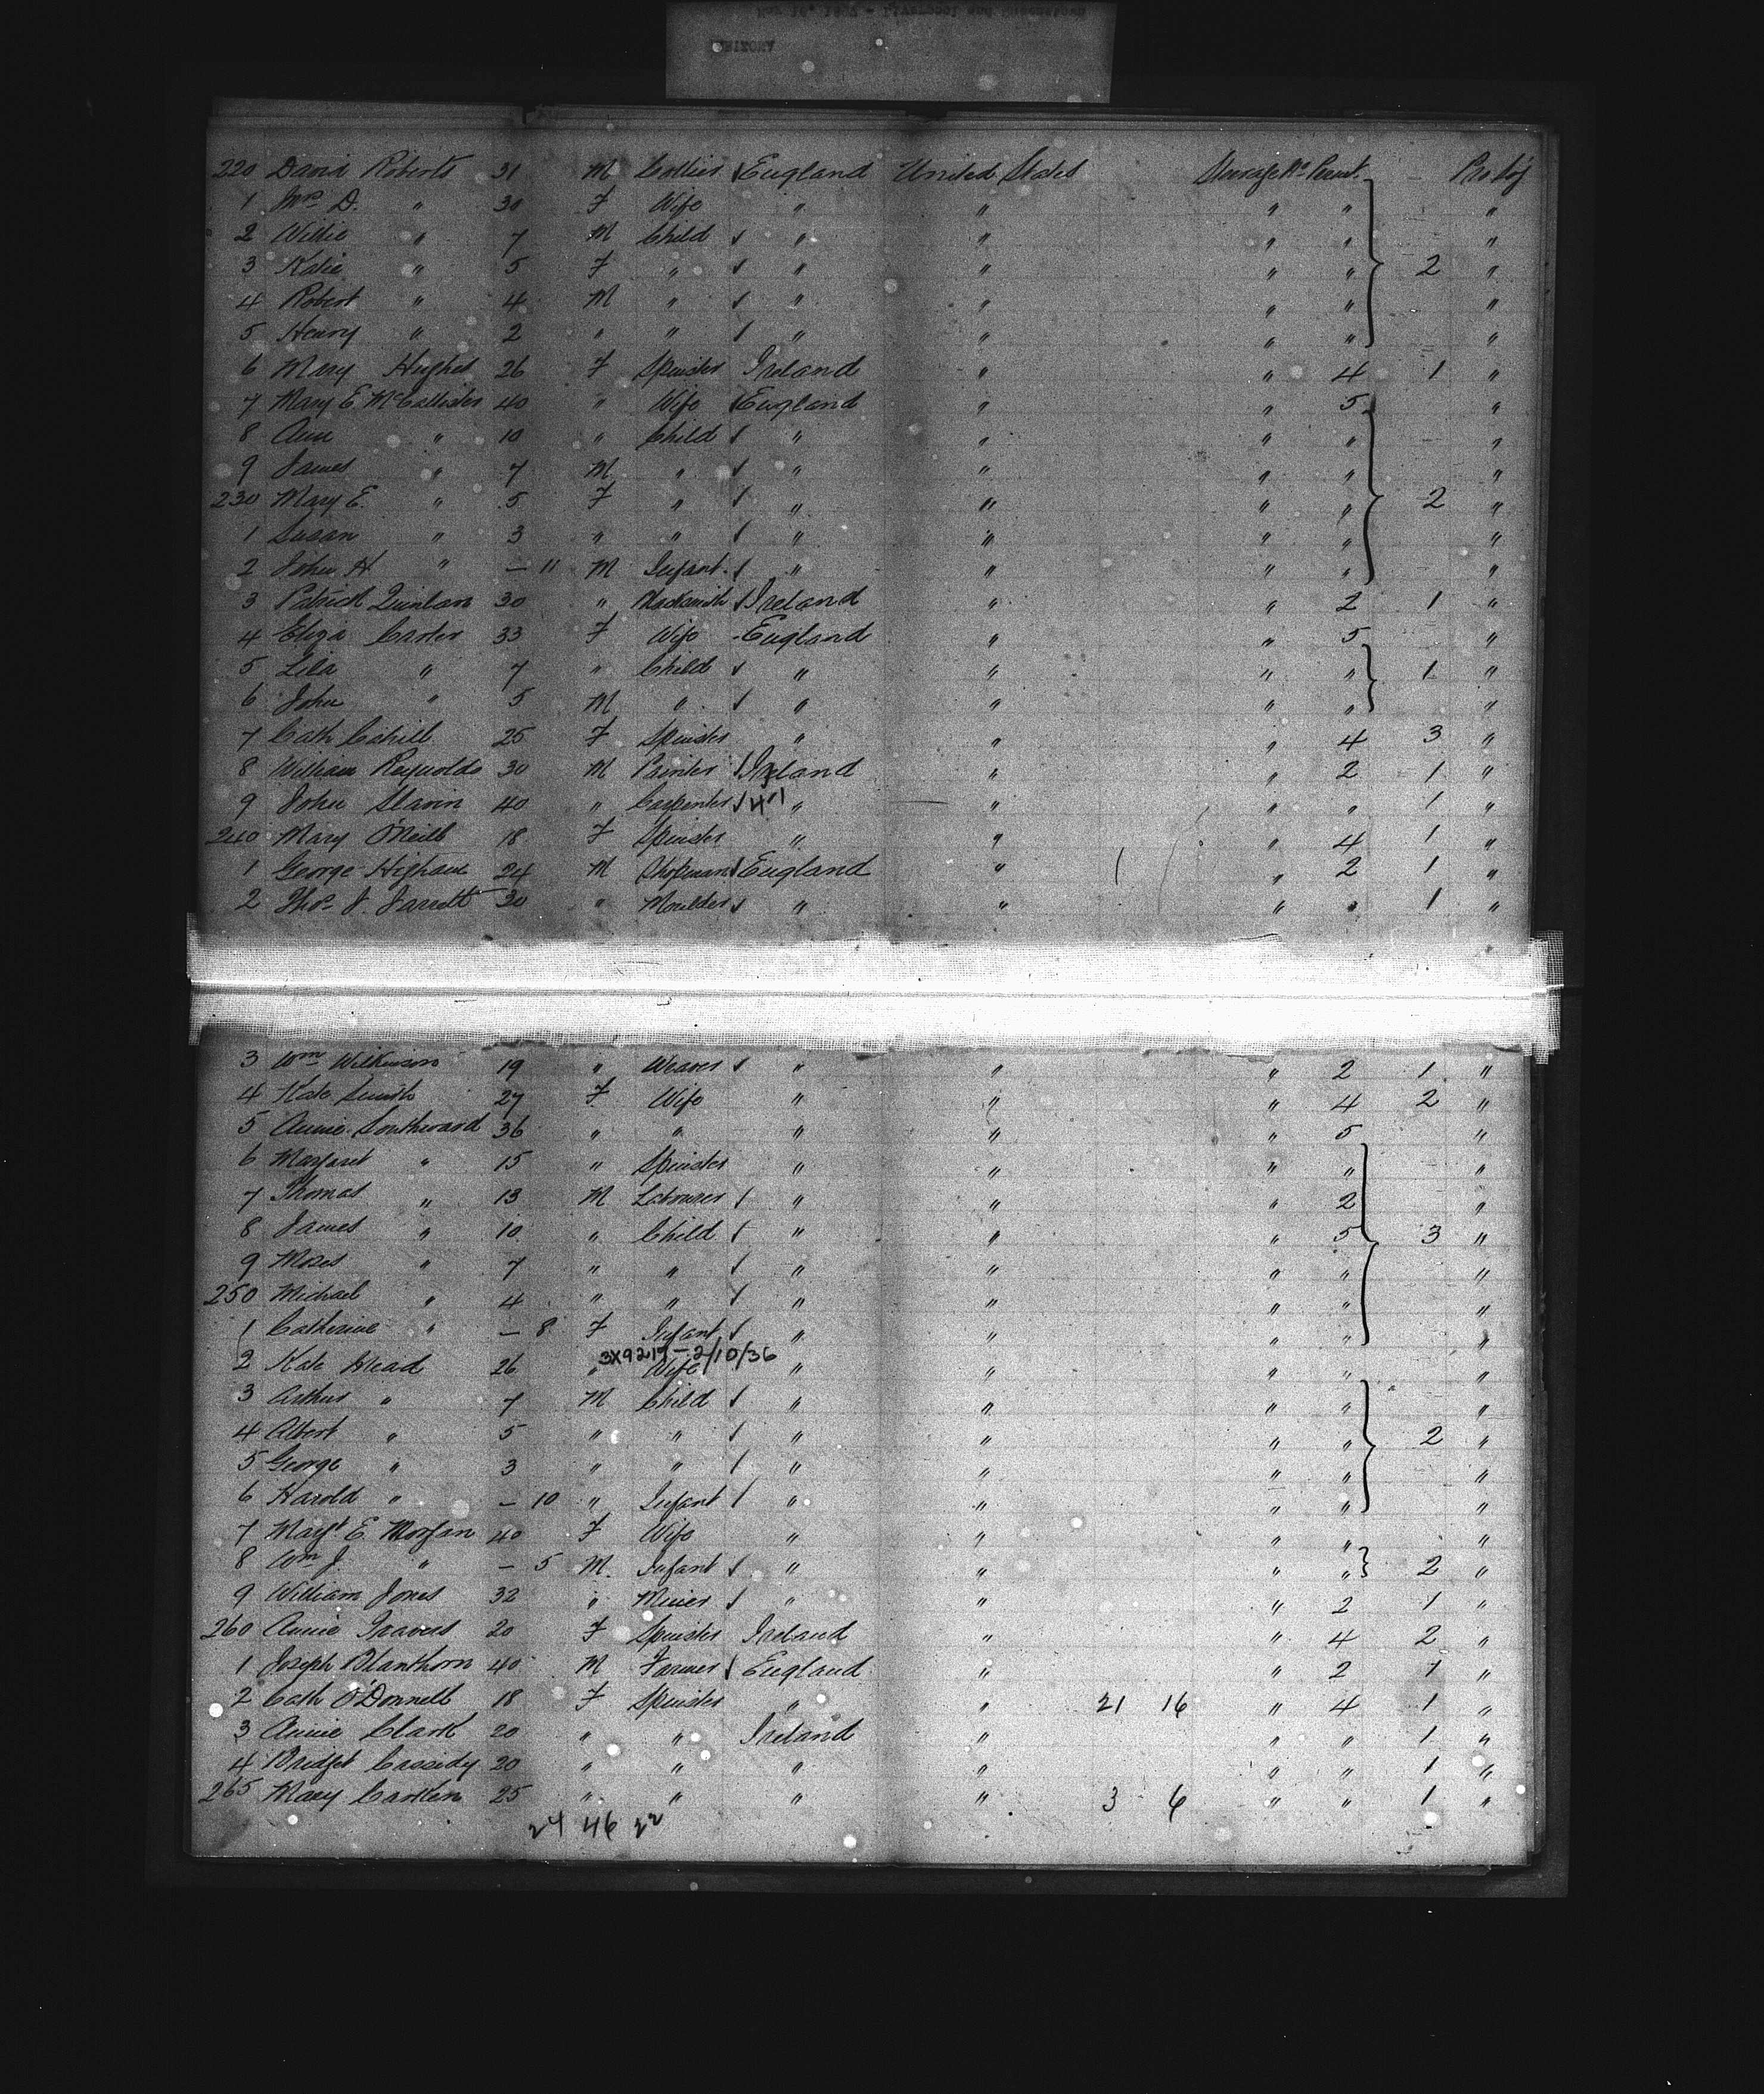 220 David Roberts 31 M Collier ✓ England United States Steerage No 2 Pro tój
1 Mrs D. " 30 F Wife " " " " "
2 Willie " 7 M Child ✓ " " " " "
3 Katie " 5 F " ✓ " " " " 2 "
4 Robert " 4 M " ✓ " " " " "
5 Henry " 2 " " ✓ " " " " "
6 Mary Hughes 26 F Spinster Ireland " " 4 1 "
7 Mary E McCallister 40 " Wife ✓ England " " 5 "
8 Ann " 10 " Child ✓ " " " " "
9 James " 7 M " ✓ " " " " "
230 Mary E. " 5 F " ✓ " " " " 2 "
1 Susan " 3 " " ✓ " " " " "
2 John H " - 11 M Infant ✓ " " " " "
3 Patrick Quinlan 30 " Blacksmith ✓ Ireland " " 2 1 "
4 Eliza Carter 33 F Wife - England " " 5 "
5 Lila " 7 " Child ✓ " " " " 1 "
6 John " 5 M " ✓ " " " " "
7 Cath Cahill 25 F Spinster " " " 4 3 "
8 William Reynolds 30 M Painter ✓ Ireland " " 2 1 "
9 John Slavin 40 " Carpenter ✓ 41 " " " " 1 "
240 Mary O'Neill 18 F Spinster " " " 4 1 "
1 George Higham 24 M Shopman ✓ England " " 2 1 "
2 Thos J. Jarrett 30 " Moulder ✓ " " " " 1 "
3 Wm Wilkinson 19 " Weaver ✓ " " " 2 1 "
4 Kate Smith 27 F Wife " " " 4 2 "
5 Annie Southward 36 " " " " " 5 "
6 Margaret " 15 " Spinster " " " " "
7 Thomas " 13 M Labourer ✓ " " " 2 "
8 James " 10 " Child ✓ " " " 5 3 "
9 Moses " 7 " " ✓ " " " " "
250 Michael " 4 " " ✓ " " " " "
1 Catherine " - 8 F Infant ✓ " " " " "
3X9217 - 2/10/36
2 Kate Head 26 " Wife " " " " "
3 Arthur " 7 M Child ✓ " " " " "
4 Albert " 5 " " ✓ " " " " 2 "
5 George " 3 " " ✓ " " " " "
6 Harold " - 10 " Infant ✓ " " " " "
7 Magt E. Morgan 40 F Wife " " " " "
8 Wm J. " - 5 M. Infant ✓ " " " " 2 "
9 William Jones 32 " Miner ✓ " " " 2 1 "
260 Annie Travers 20 F Spinster Ireland " " 4 2 "
1 Joseph Blanthorn 40 M Farmer ✓ England " " 2 1 "
2 Cath O'Donnell 18 F Spinster " " 21 16 " 4 1 "
3 Annie Clark 20 " " Ireland " " " 1 "
4 Bridget Cassidy 20 " " " " " " 1 "
265 Mary 25 " " " " 3 6 " " 1 "
24 46 22